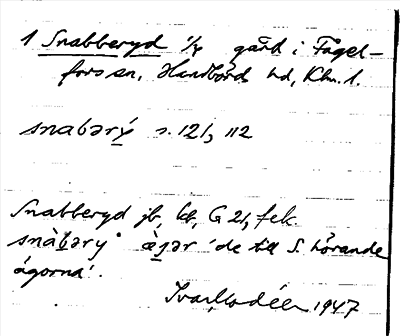 1 Snabberyd 1/4 gård i Fågel-
fors sn, Handbörds hd, Klm. l.
snabərý s. 121, 112
Snabberyd jb, kb, G 21, fek.
snàbəry ̊ ä̀jər 'de till S. hörande
ägorna'.
Ivar Modéer 1947